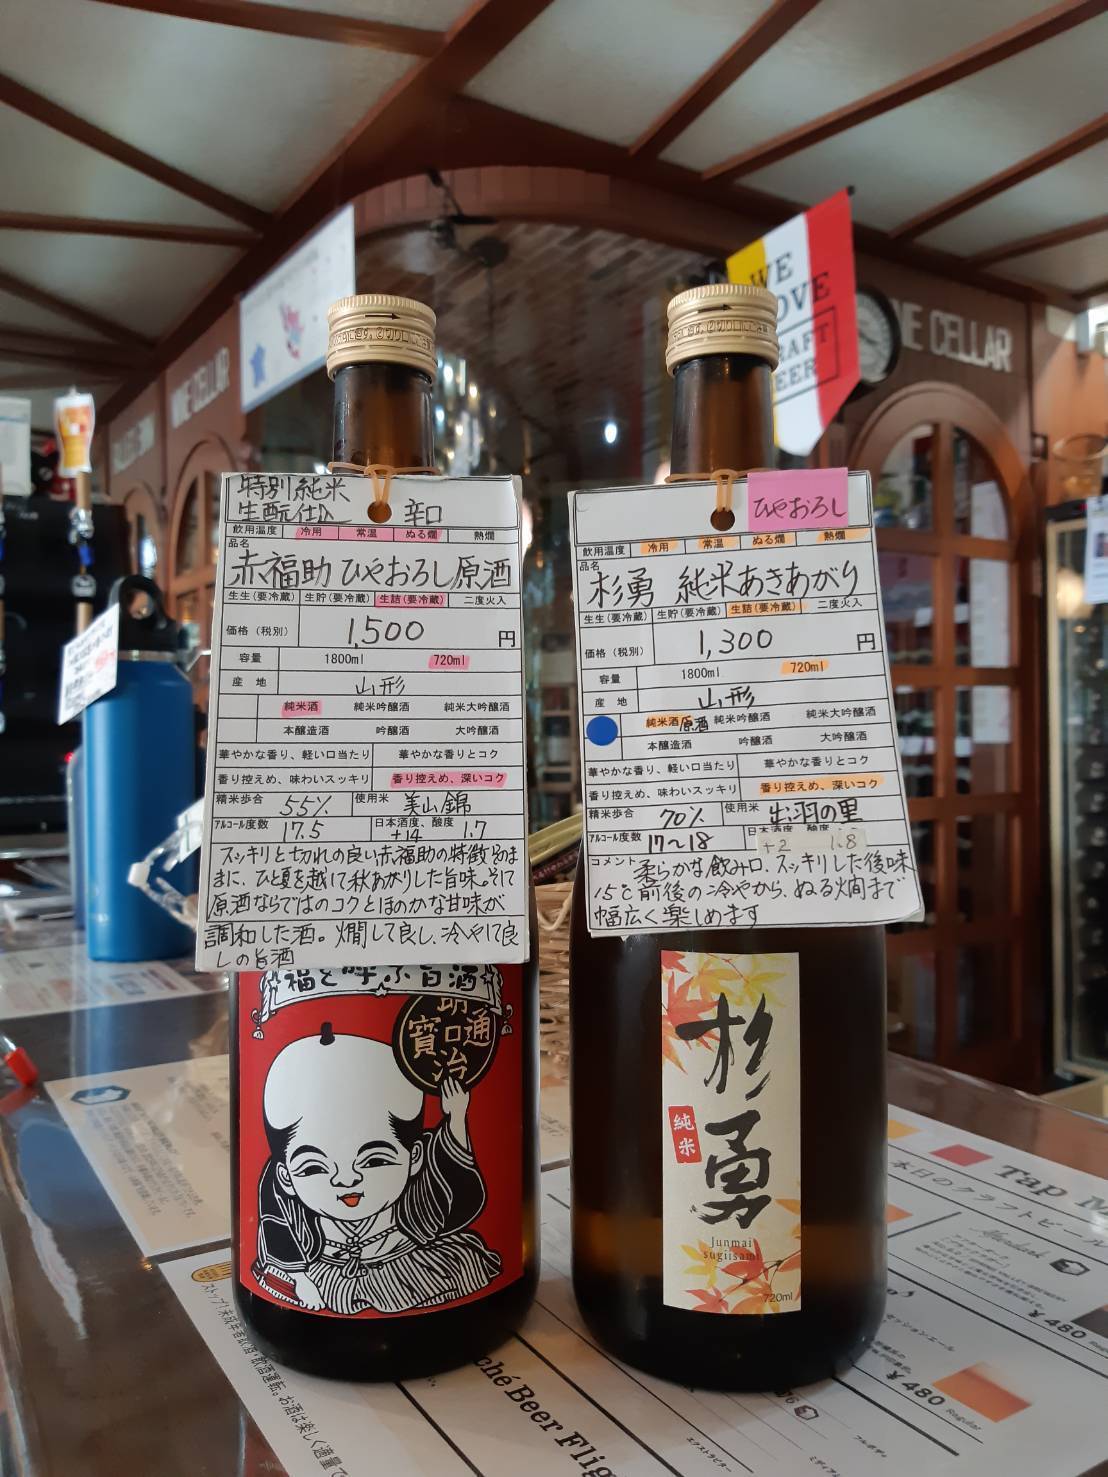 WE
LOVE
CRAFT
BEER
WINE CELLAR
WINE CELLAR
特別純米
生酛仕込 辛口
飲用温度 冷用 常温 ぬる燗 熱燗
品名
赤福助 ひやおろし原酒
生生(要冷蔵) 生貯(要冷蔵) 生詰(要冷蔵) 二度火入
価格(税別) 1,500 円
容量 1800ml 720ml
産地 山形
純米酒 純米吟醸酒 純米大吟醸酒
本醸造酒 吟醸酒 大吟醸酒
華やかな香り、軽い口当たり 華やかな香りとコク
香り控えめ、味わいスッキリ 香り控えめ、深いコク
精米歩合 55% 使用米 美山錦
アルコール度数 17.5 日本酒度、酸度 +14 1.7
スッキリと切れの良い赤福助の特徴そのま
まに、ひと夏を越して秋あがりした旨味。そして
原酒ならではのコクとほのかな甘味が
調和した酒。燗して良し、冷やして良
しの旨酒
福を呼ぶ旨酒
明治通寳
ひやおろし
飲用温度 冷用 常温 ぬる燗 熱燗
品名
杉勇 純米あきあがり
生生(要冷蔵) 生貯(要冷蔵) 生詰(要冷蔵) 二度火入
価格(税別) 1,300 円
容量 1800ml 720ml
産地 山形
純米酒 原酒 純米吟醸酒 純米大吟醸酒
本醸造酒 吟醸酒 大吟醸酒
華やかな香り、軽い口当たり 華やかな香りとコク
香り控えめ、味わいスッキリ 香り控えめ、深いコク
精米歩合 70% 使用米 出羽の里
アルコール度数 17~18 日本酒度、酸度 +2 1.8
コメント 柔らかな飲み口、スッキリした後味
15℃前後の冷やから、ぬる燗まで
幅広く楽しめます
杉勇
純米
Junmai
sugiisami
720ml
Tap M
本日のクラフトビール
¥480
Regular
セッションエール
¥480
Regular
フルボディ
エクストラビター
ché Beer Flig
ストップ!未成年者飲酒・飲酒運転。お酒は楽しく適量で。